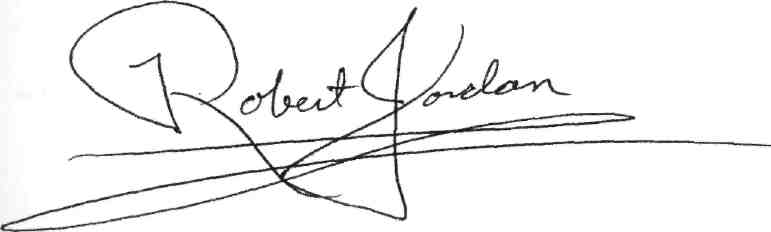 Robert Jordan